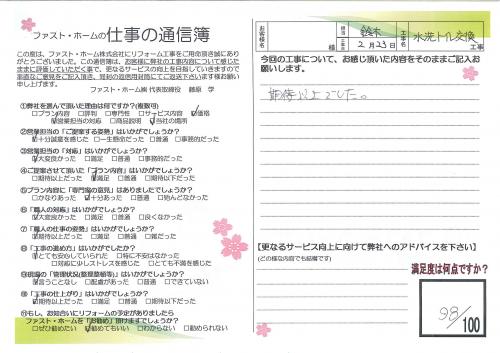 ファスト・ホームの仕事の通信簿
この度は、ファスト・ホーム株式会社にリフォーム工事をご用命頂き誠にあり
がとうございました。この通信簿は、お客様に弊社の工事内容について感じた
ままに評価していただく事で、更なるサービスの向上を目指していきますので
率直なご意見をご記入頂き、同封の返信用封筒にてご返送下さいます様お願い
申し上げます。
ファスト・ホーム㈱ 代表取締役 藤原 学
①弊社を選んで頂いた理由は何ですか？(複数可)
□プラン内容 □評判 □専門性 □サービス内容 ☑価格
☑営業担当者の対応 □商品説明 ☑当社の場所
②営業担当の「ご提案する姿勢」はいかがでしょうか？
☑十分誠意を感じた □一生懸命だった □普通 □事務的だった
③営業担当の「対応」はいかがでしょうか？
☑大変良かった □満足 □普通 □事務的だった
④ご提案させて頂いた「プラン内容」はいかがでしょうか？
□期待以上だった ☑満足 □普通 □期待以下だった
⑤プラン内容に「専門家の意見」はありましたでしょうか？
□かなりあった ☑十分あった □普通 □殆どなかった
⑥「職人の対応」はいかがでしょうか？
☑大変良かった □満足 □普通 □良くなかった
⑦「職人の仕事の姿勢」はいかがでしょうか？
☑期待以上だった □満足 □普通 □雑だった
⑧「工事の進め方」はいかがでしたか？
☑とても安心していられた □特に不安はなかった
□対処に少しストレスを感じた □とても不満を感じた
⑨現場の「管理状況(整理整頓等)」はいかがでしょうか？
☑言うことなし □配慮があった □普通 □できていない
⑩「工事の仕上がり」はいかがでしょうか？
☑期待以上だった □満足 □普通 □期待以下だった
⑪もし、お知合いにリフォームの予定がありましたら
ファスト・ホームを「お勧め」頂けますでしょうか？
□ぜひ勧めたい ☑勧めてもいい □わからない □勧められない
お客様名 様 担当 鈴木 2月23日 工事名 水洗トイレ交換 工事
今回の工事について、お感じ頂いた内容をそのままご記入お
願いします。
期待以上でした。
【更なるサービス向上に向けて弊社へのアドバイスを下さい】
(どの様な内容でも結構です)
満足度は何点ですか？
98/100